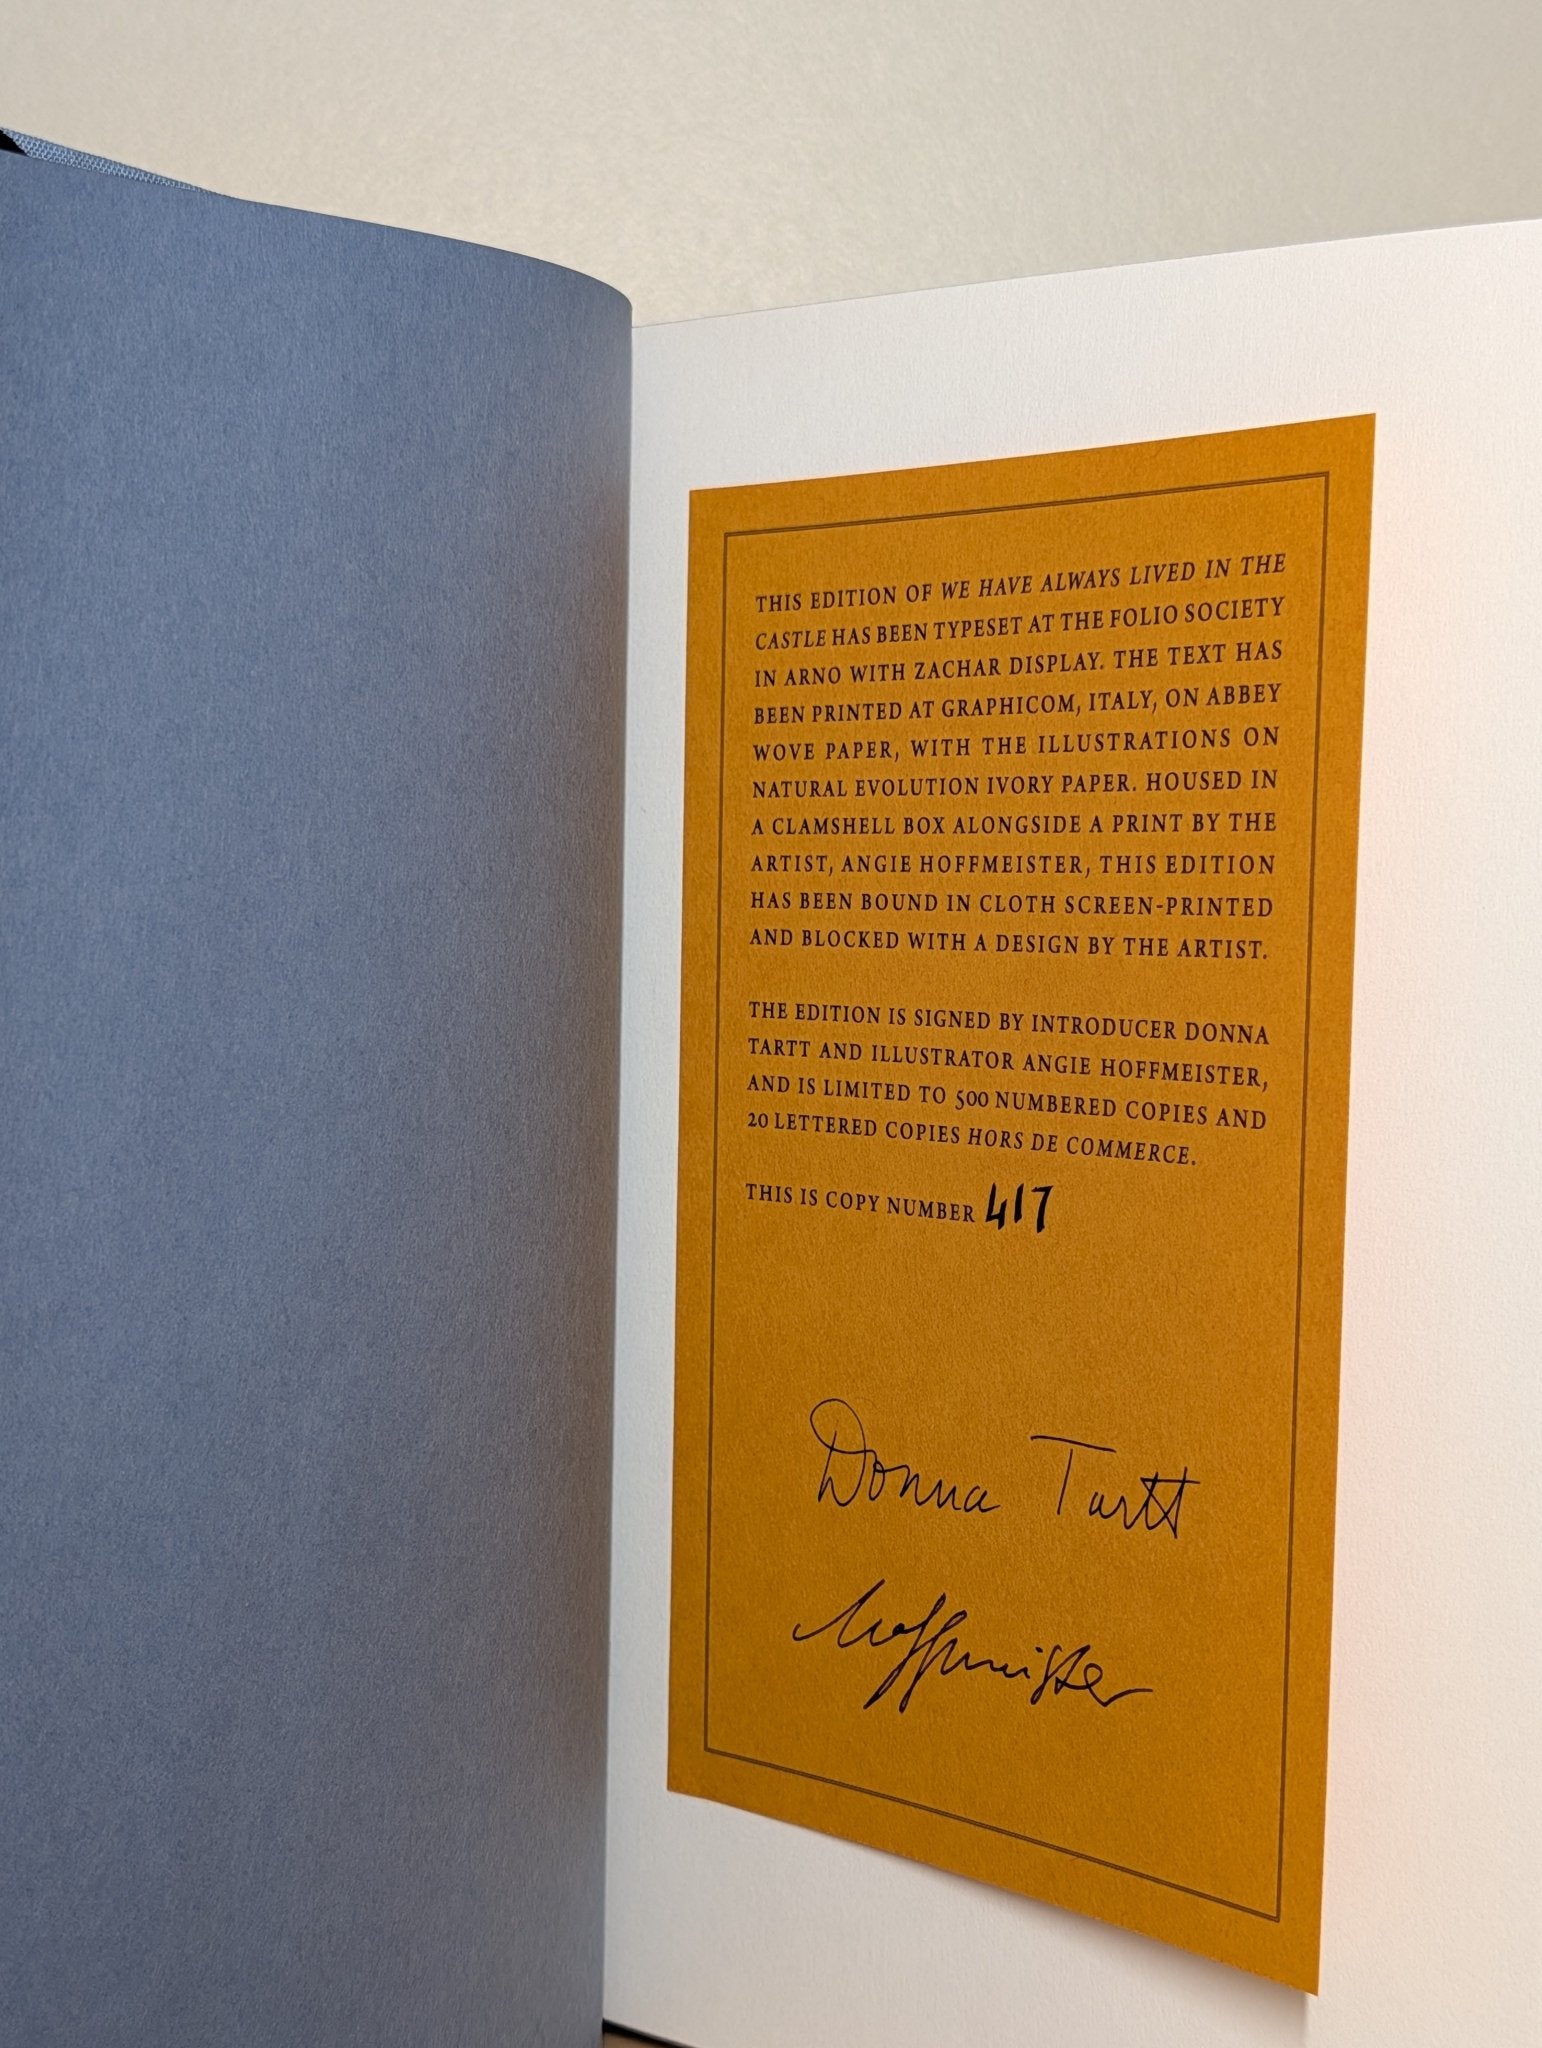 THIS EDITION OF WE HAVE ALWAYS LIVED IN THE
CASTLE HAS BEEN TYPESET AT THE FOLIO SOCIETY
IN ARNO WITH ZACHAR DISPLAY. THE TEXT HAS
BEEN PRINTED AT GRAPHICOM, ITALY, ON ABBEY
WOVE PAPER, WITH THE ILLUSTRATIONS ON
NATURAL EVOLUTION IVORY PAPER. HOUSED IN
A CLAMSHELL BOX ALONGSIDE A PRINT BY THE
ARTIST, ANGIE HOFFMEISTER, THIS EDITION
HAS BEEN BOUND IN CLOTH SCREEN-PRINTED
AND BLOCKED WITH A DESIGN BY THE ARTIST.
THE EDITION IS SIGNED BY INTRODUCER DONNA
TARTT AND ILLUSTRATOR ANGIE HOFFMEISTER,
AND IS LIMITED TO 500 NUMBERED COPIES AND
20 LETTERED COPIES HORS DE COMMERCE.
THIS IS COPY NUMBER 417
Donna Tartt
Hoffmeister